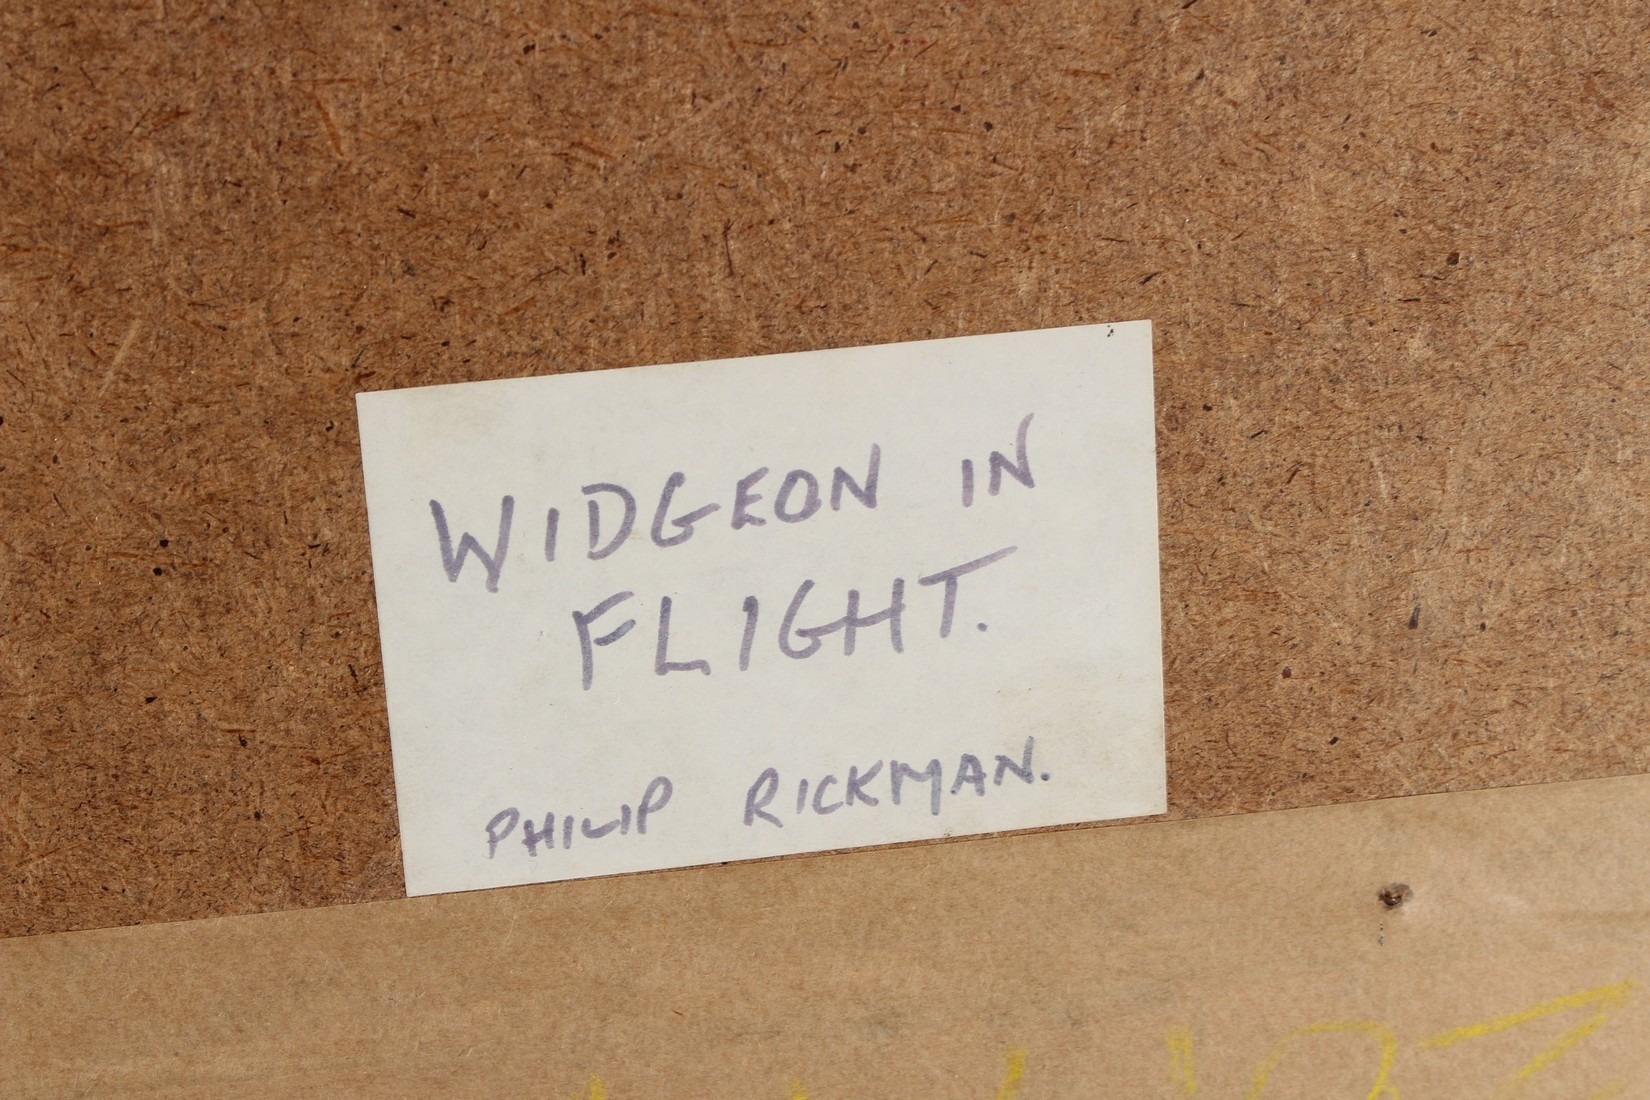 WIDGEON IN
FLIGHT.
PHILIP RICKMAN.